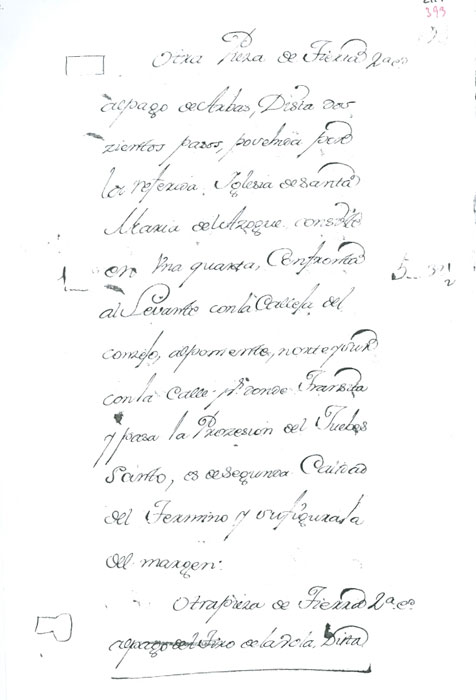 399
Otra Pieza de Tierra 2ª.
al pago de Arbas, Dista dos
zientos pasos, po
la referida Iglesia de Santa
Maria del Azogue consiste
en Una quarta, Confronta
al Levante con la Calleja del
consejo, al poniente, norte y sur
con la Calle pr donde Transita
y pasa la Prozesion del Juebes
Santo, es de Segunda Calidad
del Termino y su figura la
del margen.
Otra pieza de Tierra 2ª.
al pago del Tiro de la Vola, Dista